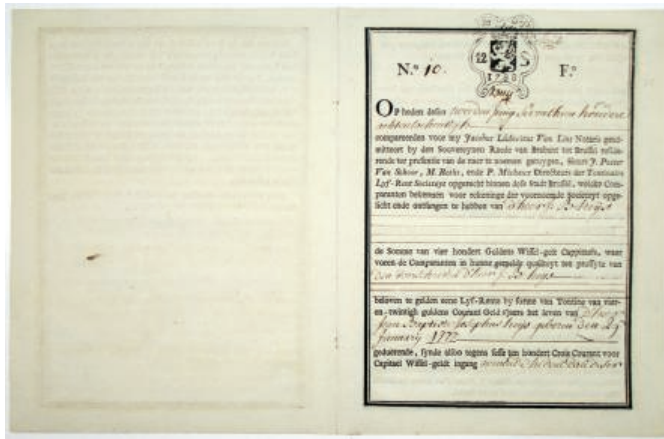 12 S
1788
N.º 10. F.º
OP heden desen tweeden Juny Seventhien hondert
achtentachentigh
compareerden voor my Jacobus Ludovicus Van Notaris gead-
mitteert by den Souvereynen Raede van Brabant tot Brussel resideerende
ter presentie van de naer te noemen getuygen, Heeren J. Pieter
Van Schoor, M. ende P. Michiels Directeurs der Tontinaire
Lyf-Rent Societeyt opgerecht binnen dese Stadt Brussel, welcke Com-
paranten bekennen voor rekeninge der voornoemde Societeyt opge-
licht ende ontfangen te hebben van
de Somme van vier hondert Guldens Wissel-gelt Cappitaels, waer
voren de Comparanten in hunne gemelde qualiteyt ten proffyte van
beloven te gelden eene Lyf-Rente by forme van Tontine van vier-
en-twintigh guldens Courant Geld s'jaers het leven van
Jean Baptiste Josephus geboren den 29
January 1777
geduerende, synde alsoo tegens sesse ten hondert Crois Courant voor
Capitael Wissel-geldt ingang